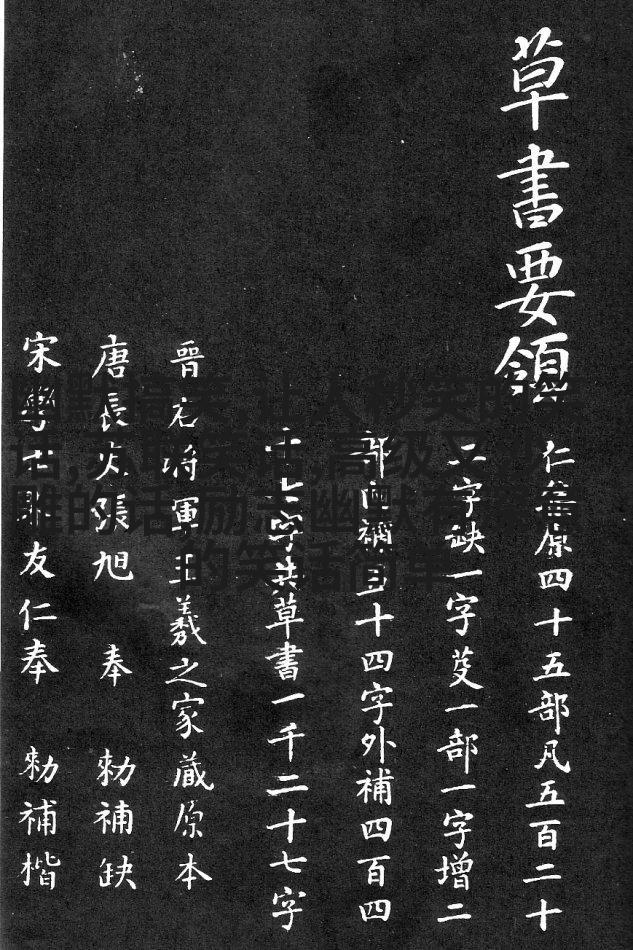 草書要領
仁集原四十五部凡五百二十
二字缺一字芟一部一字增二
部卽補百十四字外補四百四
十七字共草書一千二十七字
晉右將軍王羲之家藏原本
唐長史張旭 奉 勑補缺
宋學士 友仁奉 勑補楷
幽默搞笑,让人秒笑的笑
话,冷 笑话,高级又 少
的话,励志幽默
的笑话简单